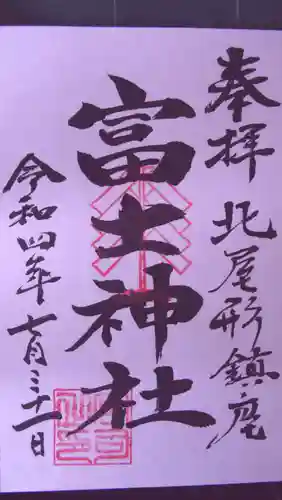 奉拝 北尾形鎮座
富士神社
令和四年七月三十一日